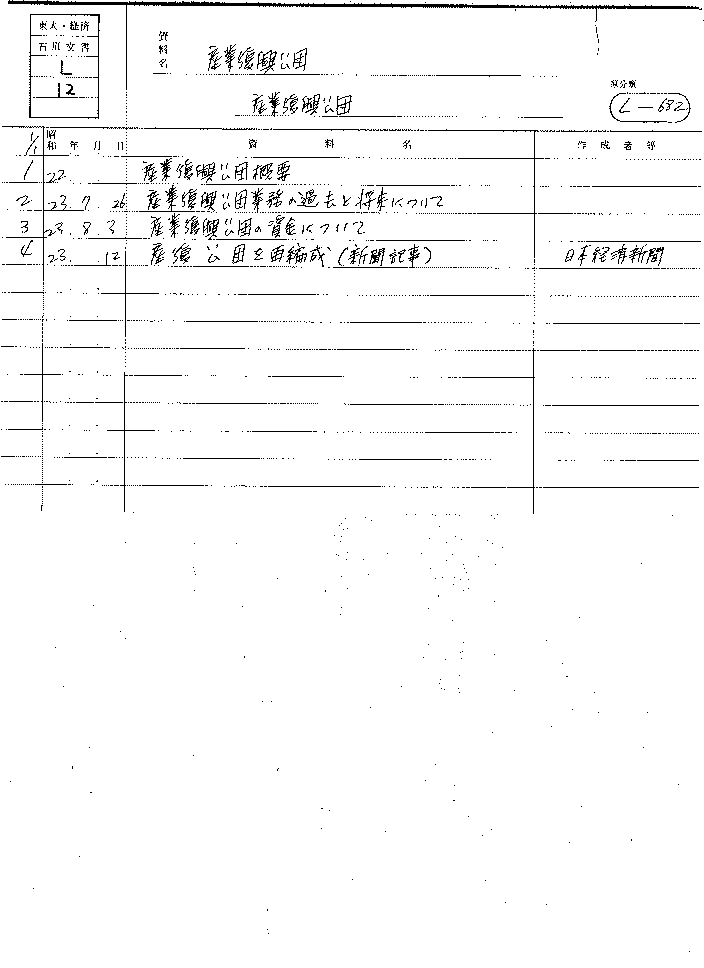 東大・経済
石川文書
L
12
資料名 産業復興公団
産業復興公団
原分類
L-632
1/1 昭和 年 月 日 資料名 作成者等
1 22. 産業復興公団概要
2 23. 7. 26 産業復興公団業務の過去と将来について
3 23. 8. 3 産業復興公団の資金について
4 23. 12 産復公団を再編成(新聞記事) 日本経済新聞